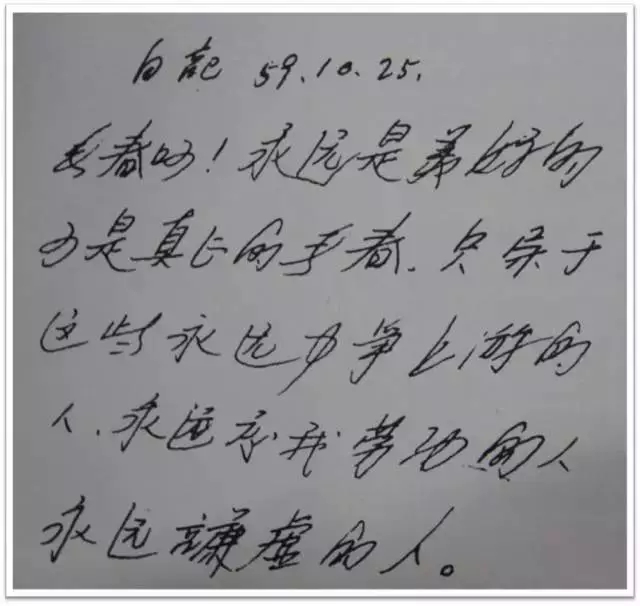 日記 59.10.25.
青春啊！永远是美好的
可是真正的青春.只属于
这些永远力争上游的
人.永远忘我劳动的人
永远謙虚的人。